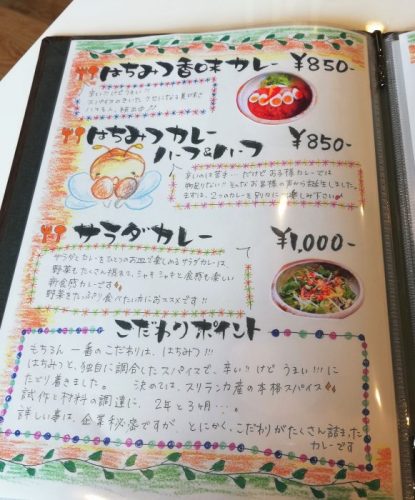 はちみつ香味カレー ¥850-
辛いけどうまい!!
スパイスのきいた クセになる美味さ
ハマる人、続出中!!
はちみつカレー
ハーフ&ハーフ ¥850-
辛いのは苦手… だけど ある様カレーでは
物足りない!! そんなお客様の声から誕生しました。
まずは、2つのカレーを別々にお楽しみ下さい
サラダカレー ¥1,000-
サラダとカレーをひとつのお皿で楽しめるサラダカレーは、
野菜もたくさん摂れて、シャキシャキと食感も楽しい
新食感カレーです
野菜をたっぷり食べたい方におススメです!!
こだわりポイント
もちろん 一番のこだわりは、はちみつ!!!
はちみつと、独自に調合したスパイスで、辛い!! けど うまい!!! に
たどり着きました。 決めては、スリランカ産の本格スパイス
試作と材料の調達に、2年と3ヶ月…。
詳しい事は、企業秘密ですが、とにかく、こだわりがたくさん詰まった
カレーです